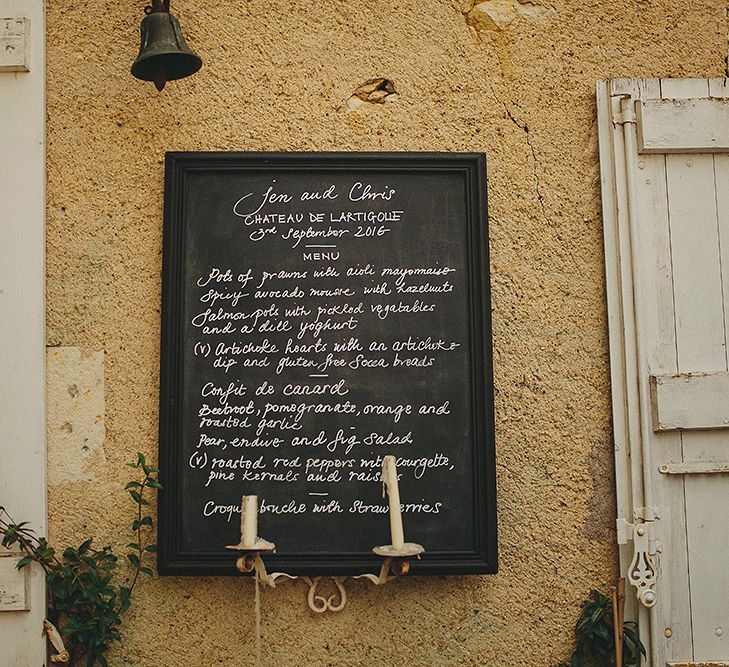 Jen and Chris
CHATEAU DE LARTIGOLLE
3rd September 2016
MENU
Pots of prawns with aioli mayonnaise
Spicy avocado mousse with hazelnuts
Salmon pots with pickled vegatables
and a dill yoghurt
(v) Artichoke hearts with an artichoke
dip and gluten free Socca breads
Confit de canard
Beetroot, pomegranate, orange and
roasted garlic
Pear, endive and fig salad
(v) roasted red peppers with courgette,
pine kernals and
with strawberries